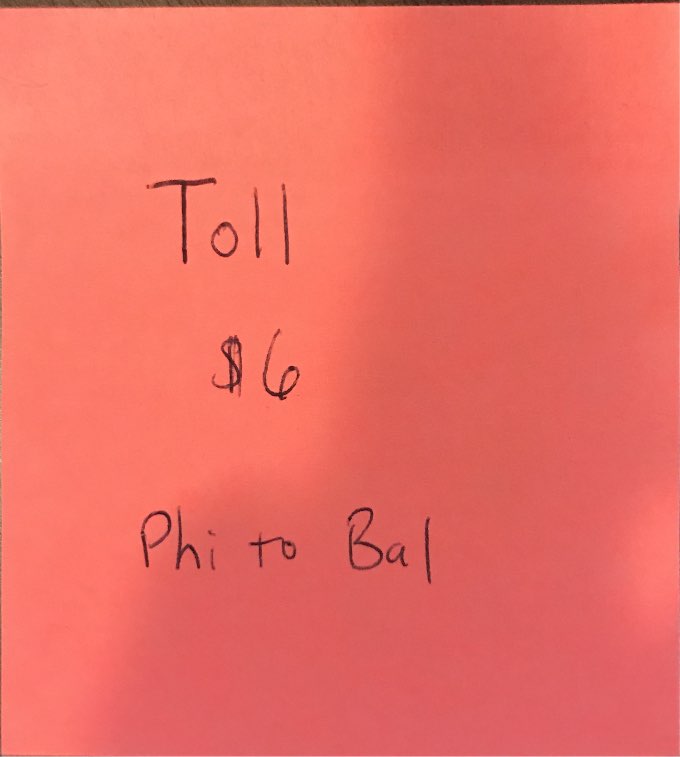 Toll
$6
Phi to Bal